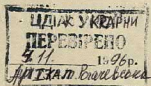 ЦДІАК УКРАЇНИ
ПЕРЕВІРЕНО
5.11. 1996р.